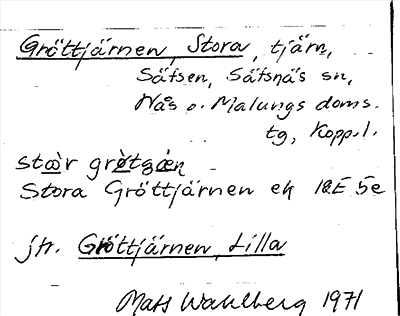 Gröttjärnen, Stora, tjärn,
Säfsen, Säfsnäs sn,
Nås o. Malungs doms.
tg, Kopp.l.
stɑ̀r grö̀tɡæ̀n
Stora Gröttjärnen ek 12E 5e
jfr. Gröttjärnen, Lilla
Mats Wahlberg 1971